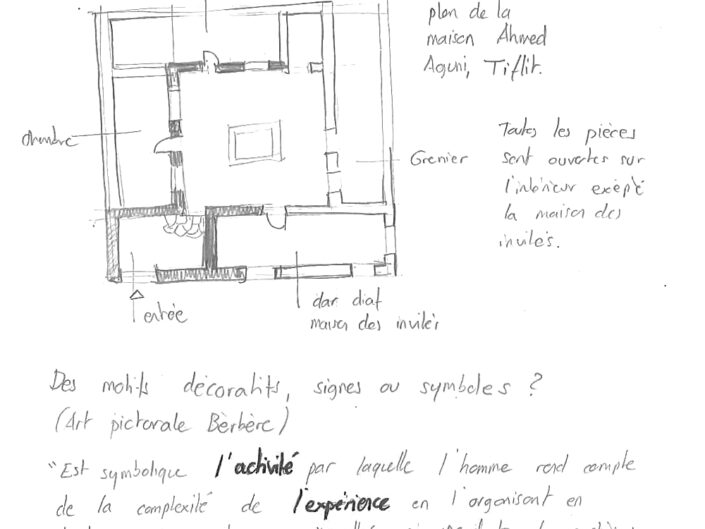 plan de la
maison Ahmed
Aguni, Tiflit.
chambre
Grenier
Toutes les pièces
sont ouvertes sur
l'intérieur exépté
la maison des
invités.
entrée
dar diaf
maison des invités
Des motifs décoratifs, signes ou symboles ?
(Art pictorale Bèrbère)
"Est symbolique l'activité par laquelle l'homme rend compte
de la complexité de l'expérience en l'organisant en